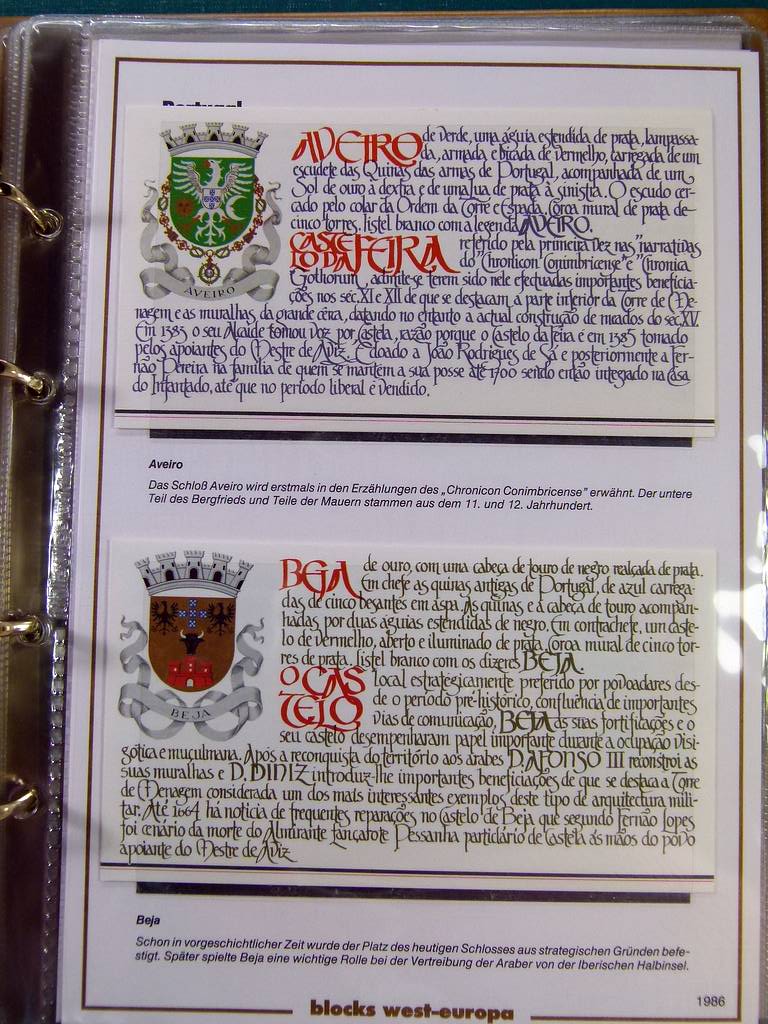 Portugal
AVEIRO de verde, uma águia estendida de prata, lampassa-
da, armada e bicada de vermelho, carregada de um
escudete das Quinas das armas de Portugal, acompanhada de um
Sol de ouro à dextra e de uma lua de prata à sinistra. O escudo cer-
cado pelo colar da Ordem da Torre e Espada. Coroa mural de prata de
cinco torres. Listel branco com a legenda AVEIRO.
CASTE
LO DA FEIRA referido pela primeira vez nas "narrativas
do "Chronicon Conimbricense" e "Chronica
Gothorum", admite-se terem sido nele efectuadas importantes beneficia-
ções nos séc. XI e XII de que se destacam a parte inferior da Torre de Me-
nagem e as muralhas da grande cerca, datando no entanto a actual construção de meados do séc. XV.
Em 1383 o seu Alcaide tomou voz por Castela, razão porque o Castelo da Feira é em 1385 tomado
pelos apoiantes do Mestre de Aviz. É doado a João Rodrigues de Sá e posteriormente a Fer-
não Pereira na família de quem se mantem a sua posse até 1700 sendo então integrado na Casa
do Infantado, até que no período liberal é vendido.
AVEIRO
Aveiro
Das Schloß Aveiro wird erstmals in den Erzählungen des „Chronicon Conimbricense" erwähnt. Der untere
Teil des Bergfrieds und Teile der Mauern stammen aus dem 11. und 12. Jahrhundert.
BEJA de ouro, com uma cabeça de touro de negro realçada de prata.
Em chefe as quinas antigas de Portugal, de azul carrega-
das de cinco besantes em aspa. As quinas e a cabeça de touro acompan-
hadas por duas águias estendidas de negro. Em contrachefe, um caste-
lo de vermelho, aberto e iluminado de prata. Coroa mural de cinco tor-
res de prata. Listel branco com os dizeres BEJA.
O CAS
TELO local estratégicamente preferido por povoadores des-
de o período pré-histórico, confluência de importantes
vias de comunicação, BEJA as suas fortificações e o
seu castelo desempenharam papel importante durante a ocupação visi-
gótica e muçulmana. Após a reconquista do território aos árabes D. AFONSO III reconstroi as
suas muralhas e D. DINIZ introduz-lhe importantes beneficiações de que se destaca a Torre
de Menagem considerada um dos mais interessantes exemplos deste tipo de arquitectura mili-
tar. Até 1664 há notícia de frequentes reparações no Castelo de Beja que segundo Fernão Lopes
foi cenário da morte do Almirante Lançarote Pessanha partidário de Castela às mãos do povo
apoiante do Mestre de Aviz
BEJA
Beja
Schon in vorgeschichtlicher Zeit wurde der Platz des heutigen Schlosses aus strategischen Gründen befe-
stigt. Später spielte Beja eine wichtige Rolle bei der Vertreibung der Araber von der Iberischen Halbinsel.
blocks west-europa
1986